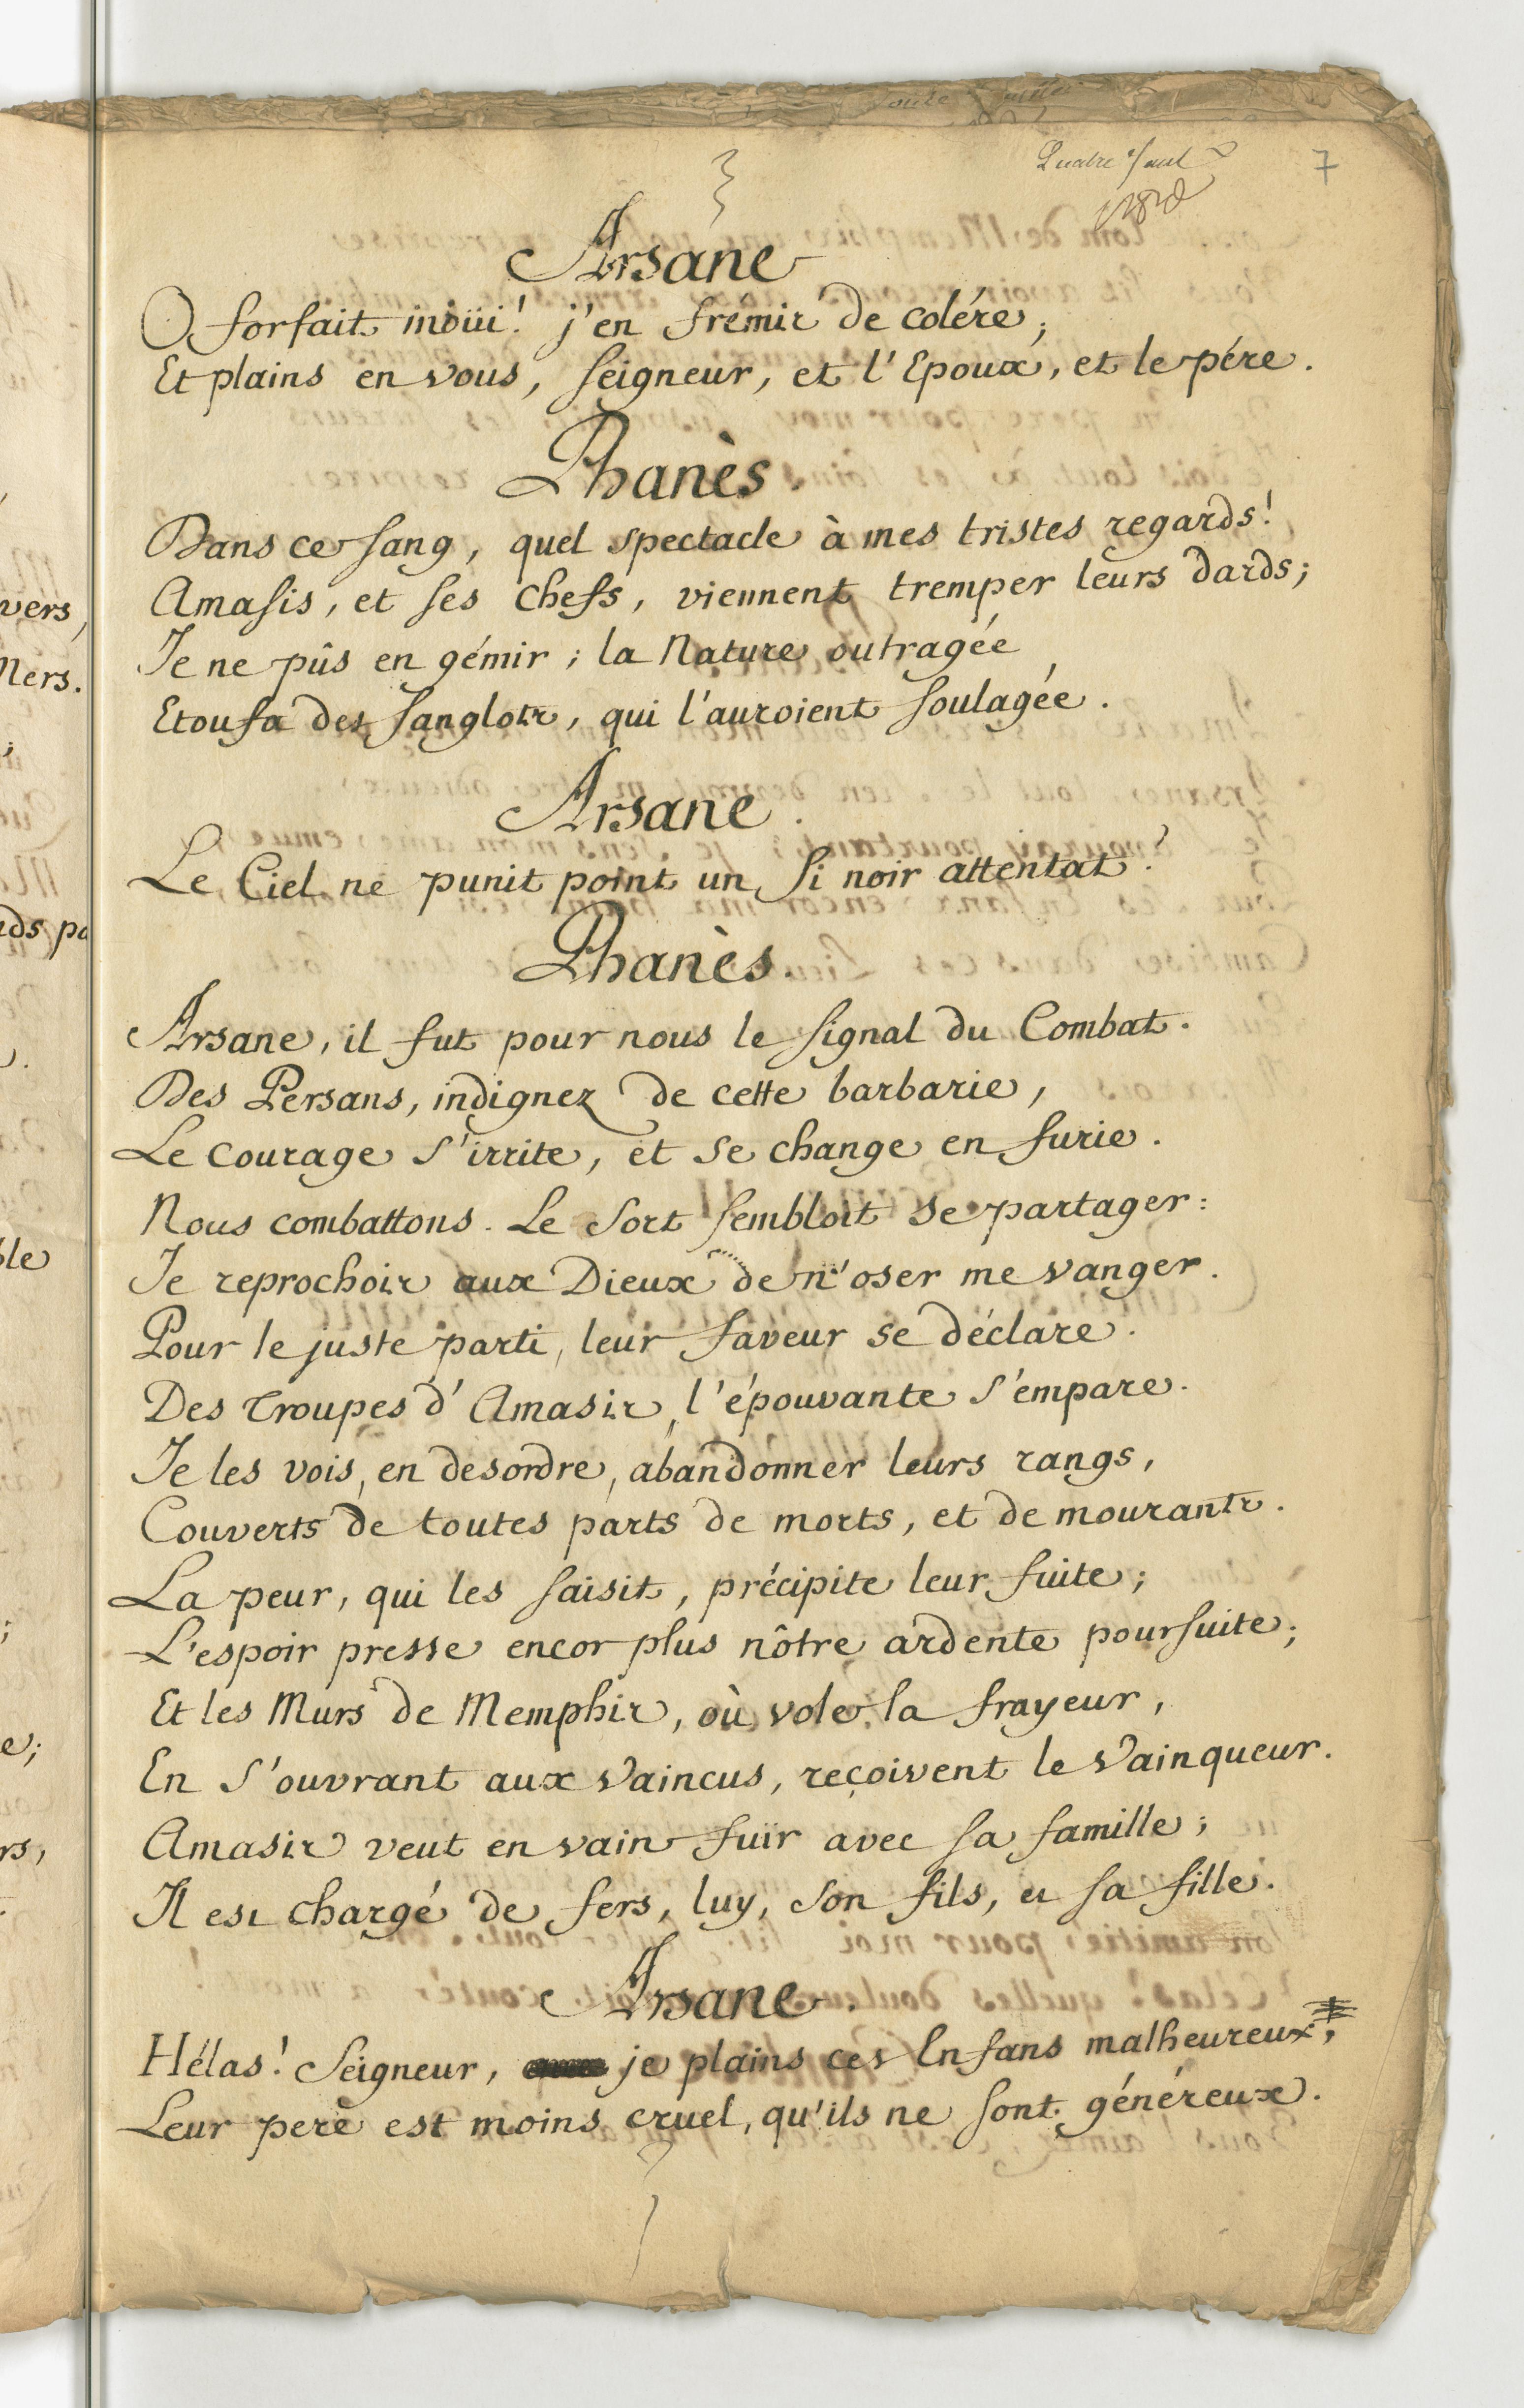 7
Arsane
O forfait inoüi! j'en frémis de colére,
Et plains en vous, Seigneur, et l'Epoux, et le pére.
Phanès.
Dans ce sang, quel spectacle à mes tristes regards!
Amasis, et ses chefs, viennent tremper leurs dards;
Je ne pûs en gémir; la Nature outragée
Etoufa des sanglots, qui l'auroient soulagée.
Arsane.
Le Ciel ne punit point un si noir attentat?
Phanès.
Arsane, il fut pour nous le signal du Combat.
Des Persans, indignez de cette barbarie,
Le courage s'irrite, et se change en furie.
Nous combattons. Le Sort sembloit se partager:
Je reprochois aux Dieux de n'oser me vanger.
Pour le juste parti, leur faveur se déclare.
Des Troupes d'Amasis, l'épouvante s'empare.
Je les vois, en desordre, abandonner leurs rangs,
Couverts de toutes parts de morts, et de mourants.
La peur, qui les saisit, précipite leur fuite;
L'espoir presse encor plus nôtre ardente poursuite;
Et les Murs de Memphis, où vole la frayeur,
En s'ouvrant aux Vaincus, reçoivent le Vainqueur.
Amasis veut en vain fuïr avec sa famille;
Il est chargé de fers, luy, son fils, et sa fille.
Arsane.
Hélas! Seigneur, je plains ces Enfans malheureux,
Leur pere est moins cruel, qu'ils ne sont généreux.
vers,
Mers.